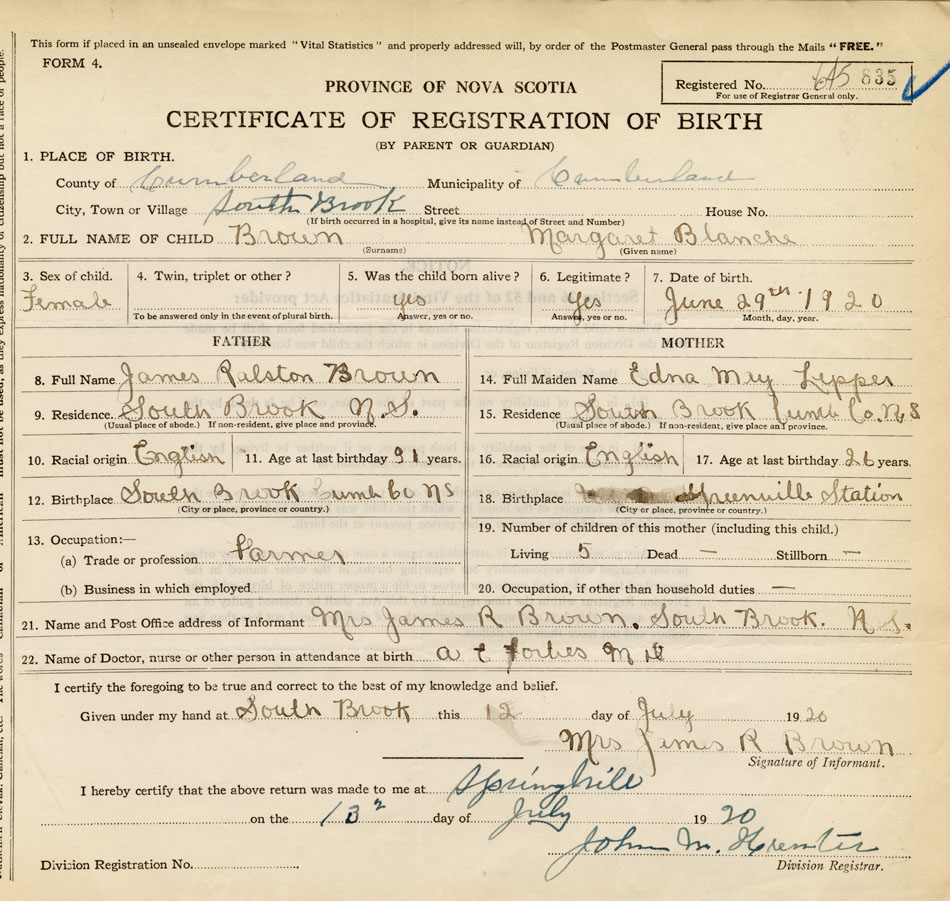 This form if placed in an unsealed envelope marked "Vital Statistics" and properly addressed will, by order of the Postmaster General pass through the Mails "FREE."
FORM 4.
Registered No. 835
For use of Registrar General only.
PROVINCE OF NOVA SCOTIA
CERTIFICATE OF REGISTRATION OF BIRTH
(BY PARENT OR GUARDIAN)
1. PLACE OF BIRTH.
County of Cumberland Municipality of Cumberland
City, Town or Village South Brook Street House No.
(If birth occurred in a hospital, give its name instead of Street and Number)
2. FULL NAME OF CHILD Brown Margaret Blanche
(Surname) (Given name)
3. Sex of child. 4. Twin, triplet or other? 5. Was the child born alive? 6. Legitimate? 7. Date of birth.
Female yes Yes June 29th 1920
To be answered only in the event of plural birth. Answer, yes or no. Answer, yes or no. Month, day, year.
FATHER
8. Full Name James Ralston Brown
9. Residence. South Brook N.S.
(Usual place of abode.) If non-resident, give place and province.
10. Racial origin English 11. Age at last birthday 31 years.
12. Birthplace South Brook Cumb Co NS
(City or place, province or country.)
13. Occupation:—
(a) Trade or profession Farmer
(b) Business in which employed
MOTHER
14. Full Maiden Name Edna May Lepper
15. Residence South Brook Cumb Co. N S
(Usual place of abode.) If non-resident, give place and province.
16. Racial origin English 17. Age at last birthday 26 years.
18. Birthplace Greenville Station
(City or place, province or country.)
19. Number of children of this mother (including this child.)
Living 5 Dead — Stillborn —
20. Occupation, if other than household duties —
21. Name and Post Office address of Informant Mrs James R Brown. South Brook. N.S.
22. Name of Doctor, nurse or other person in attendance at birth A E Forbes M D
I certify the foregoing to be true and correct to the best of my knowledge and belief.
Given under my hand at South Brook this 12 day of July 1920
Mrs James R Brown
Signature of Informant.
I hereby certify that the above return was made to me at Springhill
on the 13 day of July 1920
John M. Hunter
Division Registration No. Division Registrar.